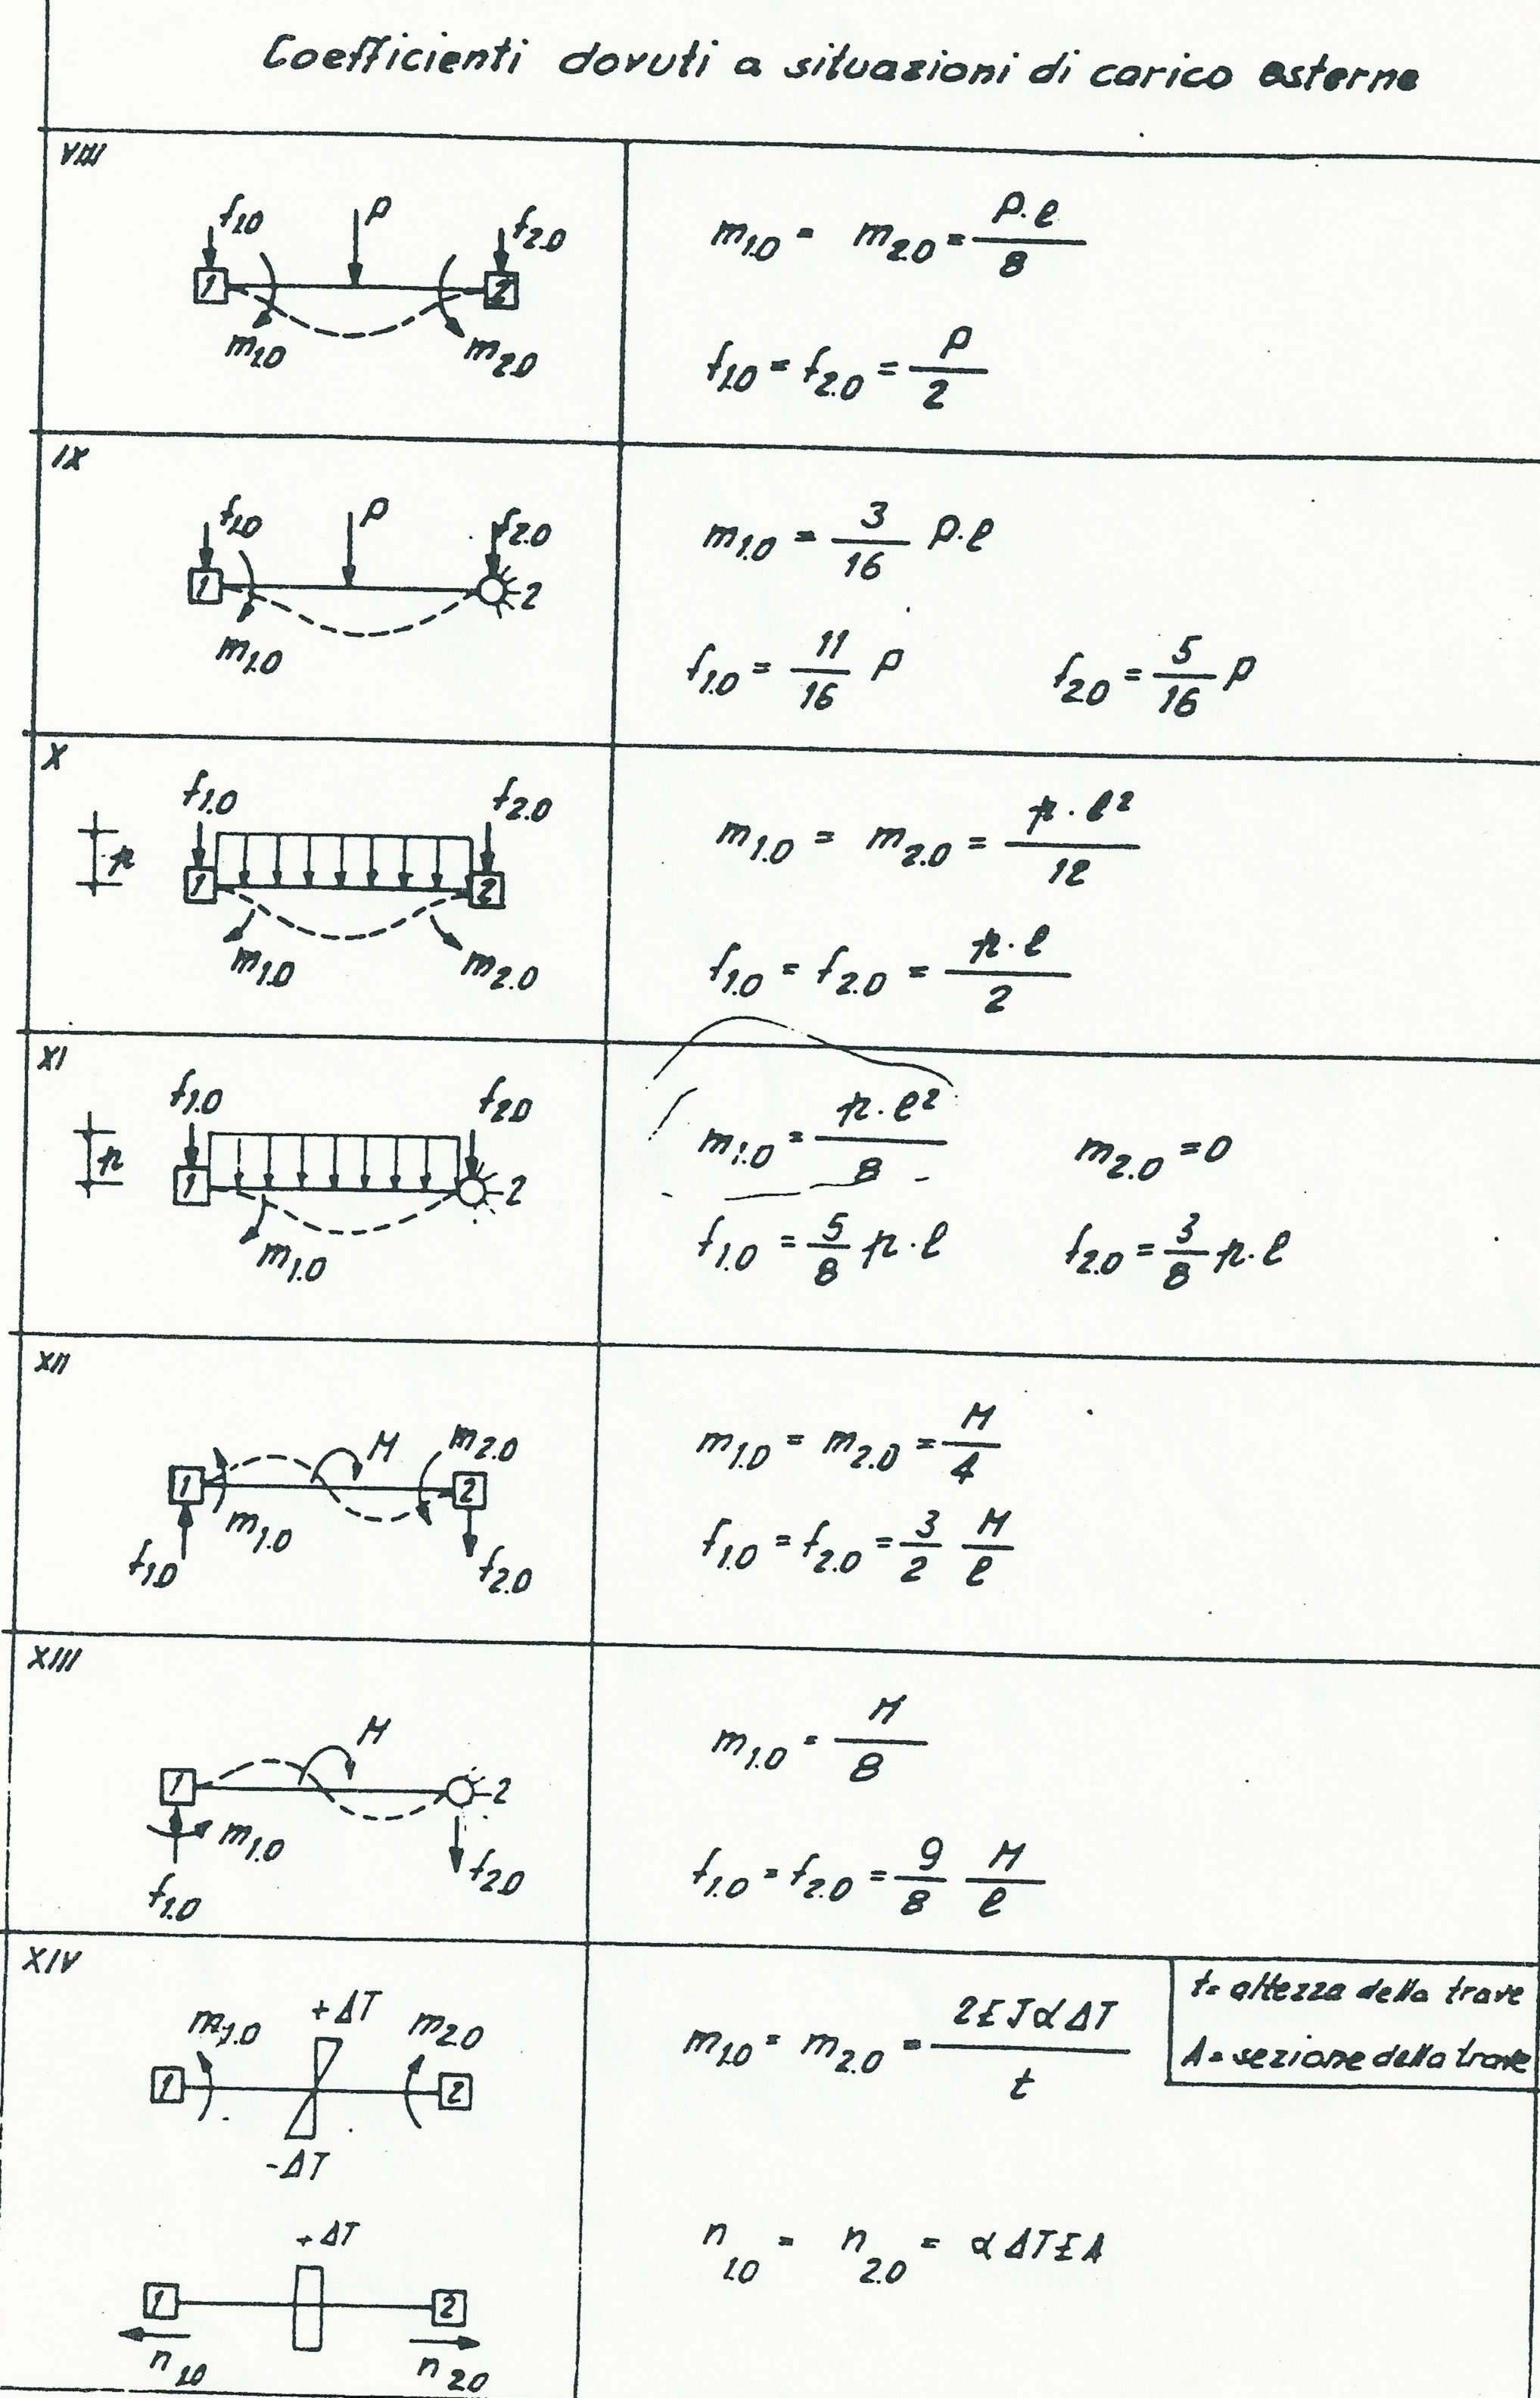 Coefficienti dovuti a situazioni di carico esterne
VIII
f1.0 P f2.0
1 2
m1.0 m2.0
m1.0 = m2.0 = P·l/8
f1.0 = f2.0 = P/2
IX
f1.0 P f2.0
1 2
m1.0
m1.0 = 3/16 P·l
f1.0 = 11/16 P f2.0 = 5/16 P
X
f1.0 f2.0
p
1 2
m1.0 m2.0
m1.0 = m2.0 = p·l²/12
f1.0 = f2.0 = p·l/2
XI
f1.0 f2.0
p
1 2
m1.0
m1.0 = p·l²/8 m2.0 = 0
f1.0 = 5/8 p·l f2.0 = 3/8 p·l
XII
M m2.0
1 2
m1.0
f1.0 f2.0
m1.0 = m2.0 = M/4
f1.0 = f2.0 = 3/2 M/l
XIII
M
1 2
m1.0
f1.0 f2.0
m1.0 = M/8
f1.0 = f2.0 = 9/8 M/l
XIV
m1.0 +ΔT m2.0
1 2
-ΔT
m1.0 = m2.0 = 2EJαΔT/t
t = altezza della trave
A = sezione della trave
+ΔT
1 2
n1.0 n2.0
n1.0 = n2.0 = αΔTEA